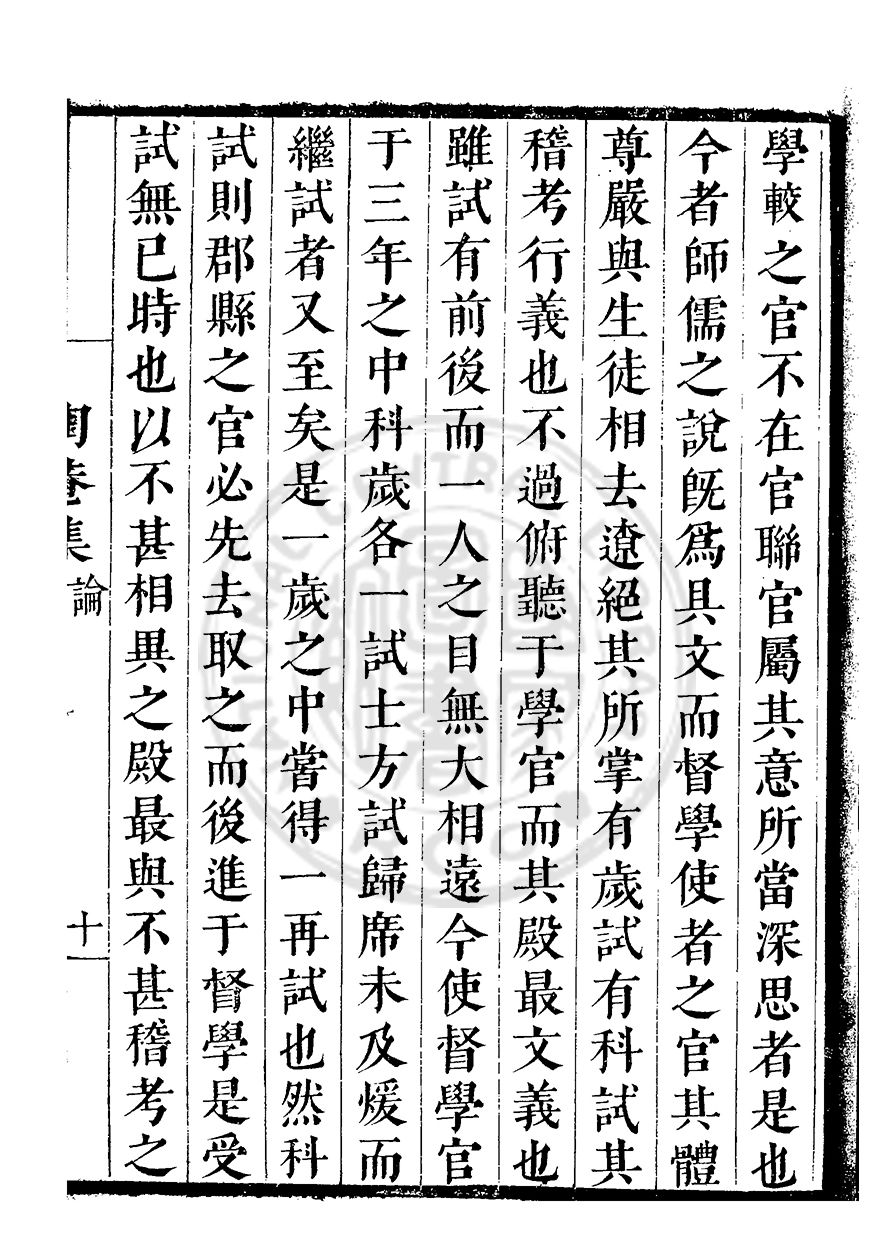 學較之官不在官聯官屬其意所當深思者是也
今者師儒之說旣爲具文而督學使者之官其體
尊嚴與生徒相去遼絕其所掌有歲試有科試其
稽考行義也不過俯聽于學官而其殿最文義也
雖試有前後而一人之目無大相遠今使督學官
于三年之中科歲各一試士方試歸席未及煖而
繼試者又至矣是一歲之中嘗得一再試也然科
試則郡縣之官必先去取之而後進于督學是受
試無已時也以不甚相異之殿最與不甚稽考之
陶菴集 論 十